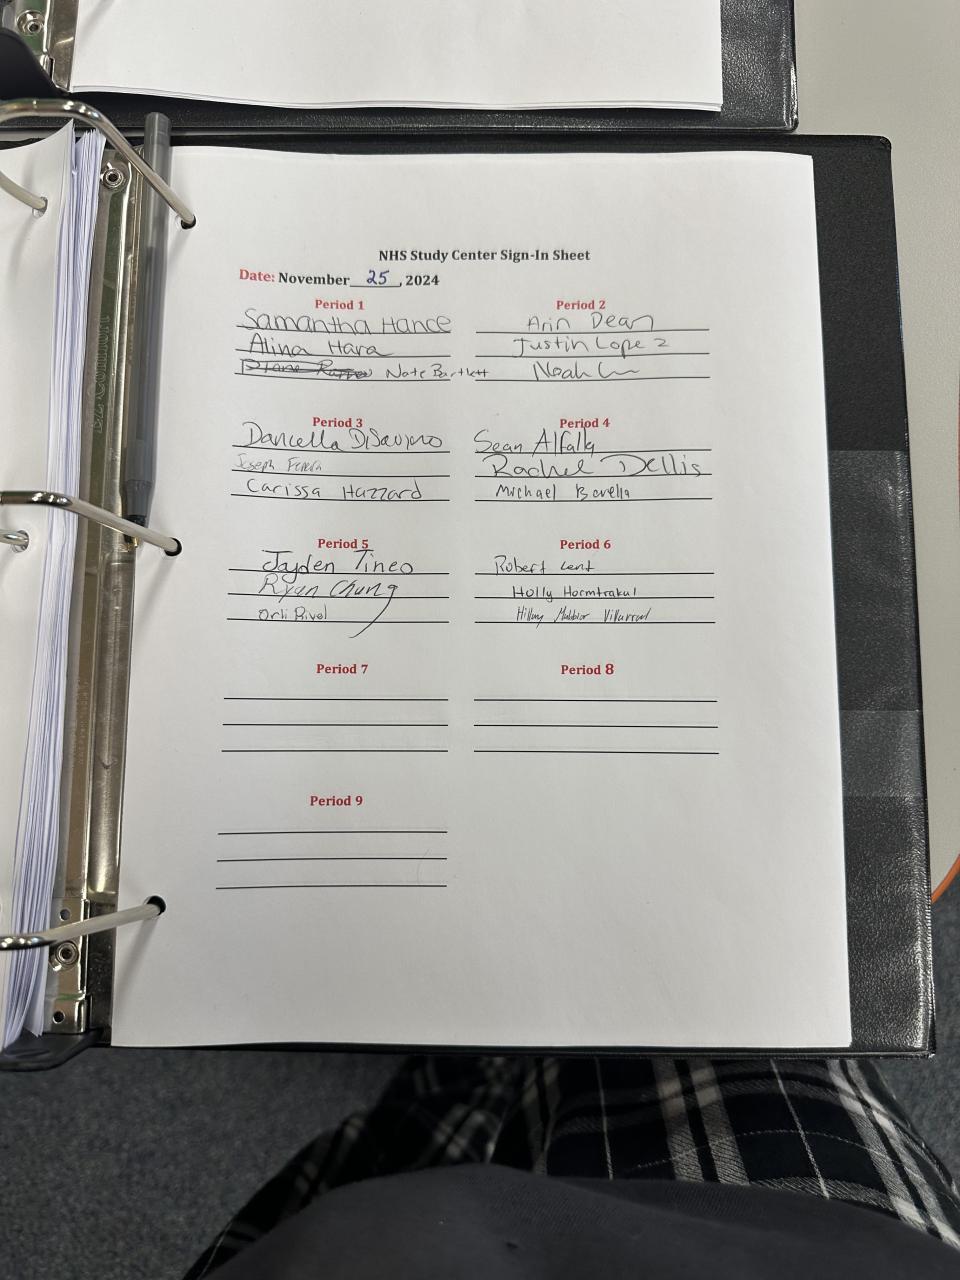 NHS Study Center Sign-In Sheet
Date: November 25, 2024
Period 1 Period 2
Samantha Hance Arin Dean
Alina Hara Justin Lopez
Nate Bartlett Noah
Period 3 Period 4
Daniella DiSaviano Sean Alfalla
Joseph Carissa Hazzard Rachel Dellis
Michael Bovella
Period 5 Period 6
Jayden Tineo Robert Lent
Ryan Chung Holly Hormtrakul
Orli Rivel Villarreal
Period 7 Period 8
Period 9